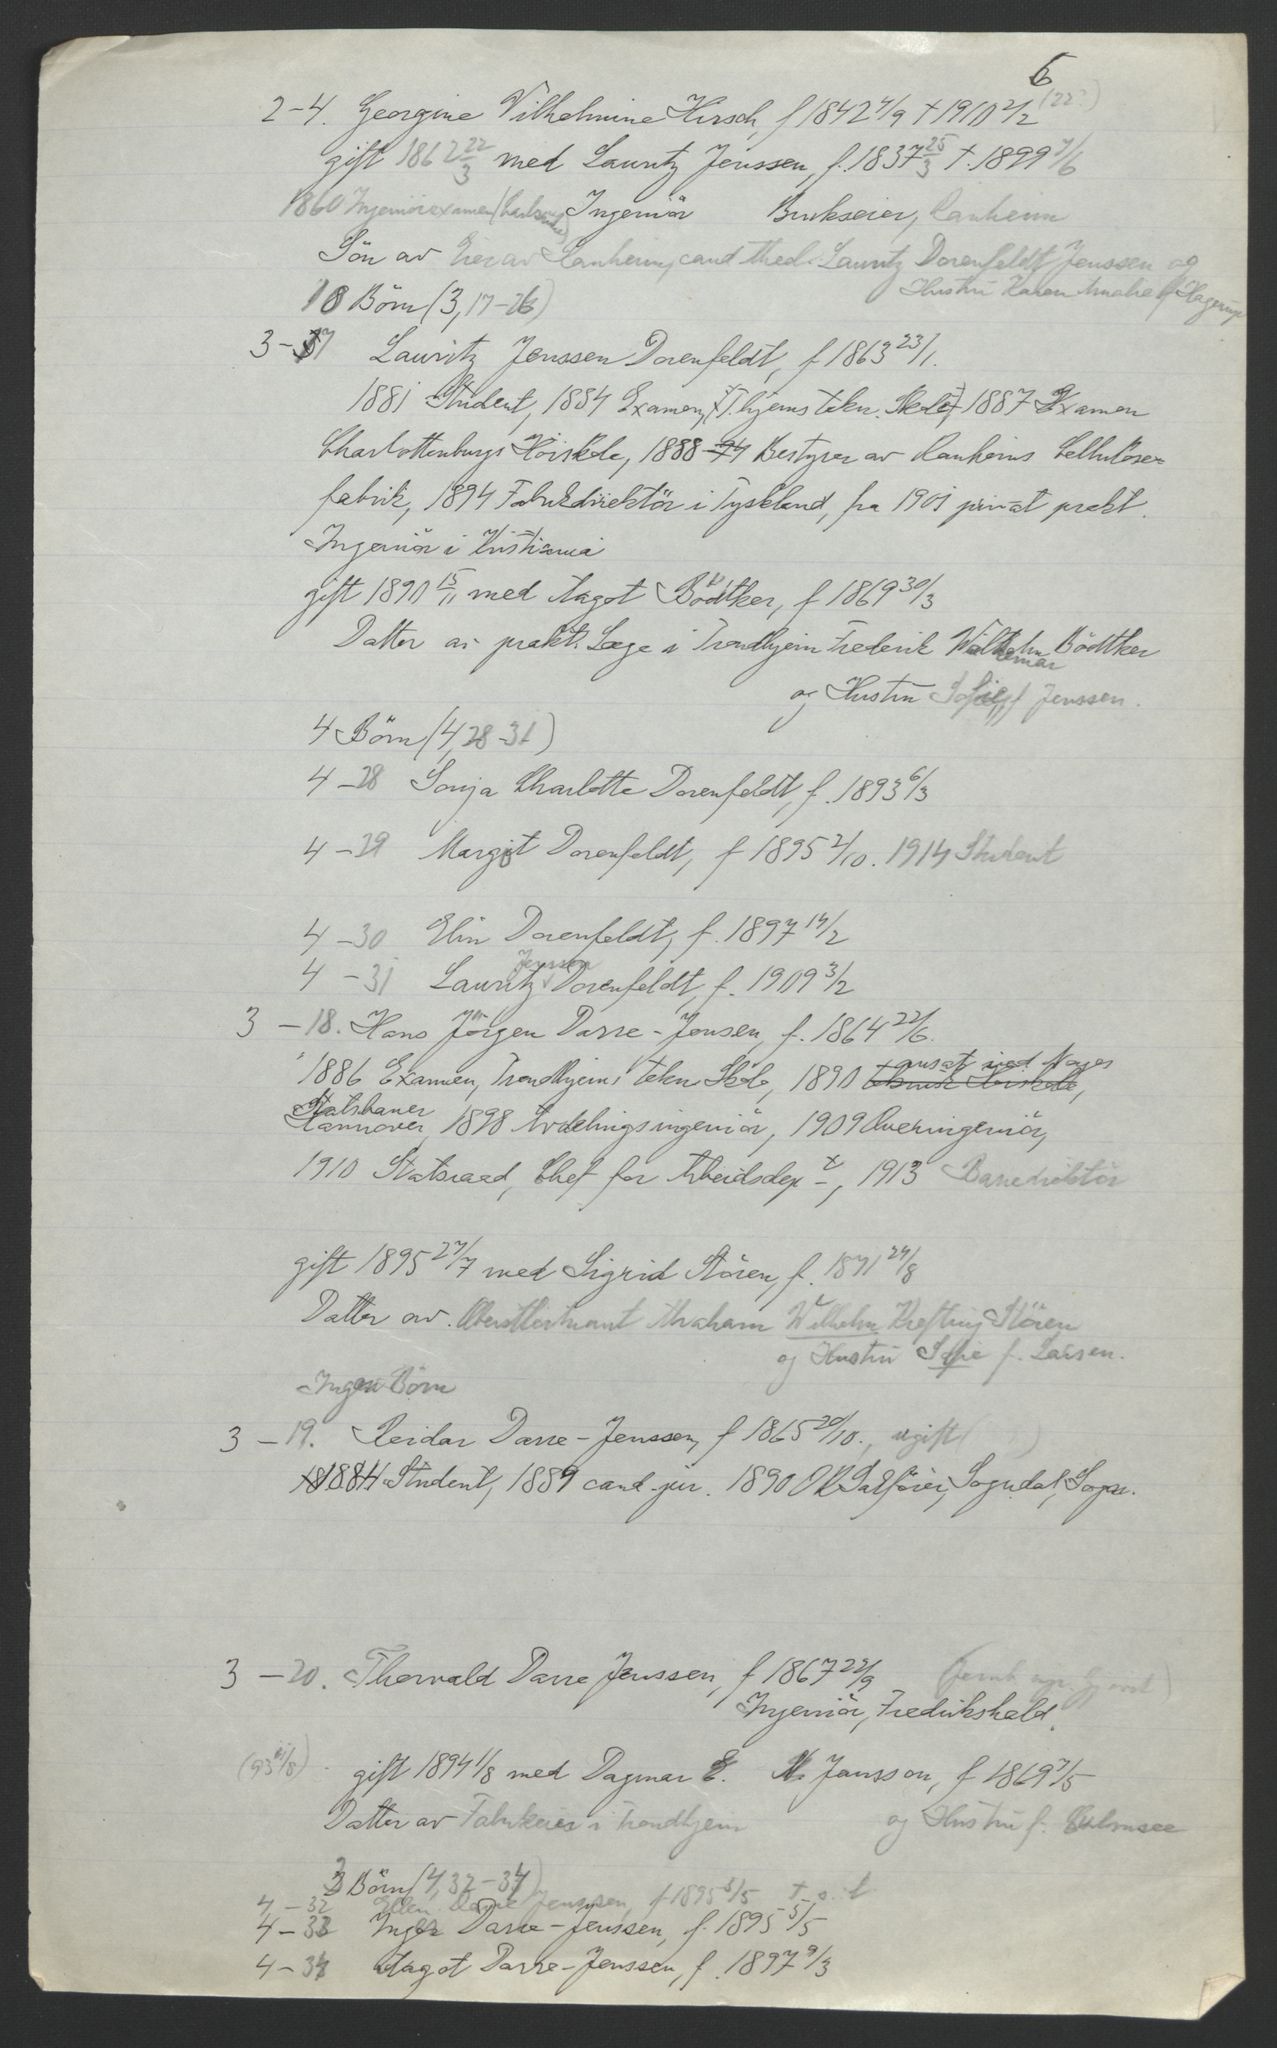 6
2-4. Georgine Vilhelmine Hirsch, f 1842 4/9 † 1910 2/2 (22?)
gift 1862 22/3 med Lauritz Jenssen, f. 1837 25/3 †. 1899 7/6
1860 Ingeniörexamen (Carlsruhe) Ingeniör Brukseier, Ranheim
Sön av Eier av Ranheim, cand theol. Lauritz Dorenfeldt Jenssen og
Hustru Karen Amalie f. Hagerup
10 Börn (3, 17-26)
3-17 Lauritz Jenssen Dorenfeldt, f 1863 23/1.
1881 Student, 1884 Examen, T.hjems tekn. Skole, 1887 Examen
Charlottenburgs Höiskole, 1888-94 Bestyrer av Ranheims Cellulose-
fabrik, 1894 Fabrikdirektör i Tyskland, fra 1901 privat prakt.
Ingeniör i Kristiania
gift 1890 15/11 med Aagot Bödtker, f 1869 30/3
Datter av prakt. Læge i Trondhjem Frederik Waldemar Bödtker
og Hustru Sofie f Jenssen.
4 Börn (4, 28-31)
4-28 Sonja Charlotte Dorenfeldt, f. 1893 6/3
4-29 Margit Dorenfeldt, f 1895 2/10. 1914 Student
4-30 Elin Dorenfeldt, f. 1897 14/2
Jenssen
4-31 Lauritz Dorenfeldt, f. 1909 3/2
3-18. Hans Jörgen Darre-Jensen, f. 1864 22/6.
ansat ved Norges
1886 Examen, Trondhjems tekn Skole, 1890 teknisk Höiskole,
Statsbaner
Hannover, 1898 Avdelingsingeniör, 1909 Overingeniör,
1910 Statsraad, Chef for Arbeidsdept, 1913 Banedirektör
gift 1895 27/7 med Sigrid Stören, f. 1871 24/8
Datter av. Oberstlöitnant Abraham Wilhelm Krefting Stören
og Hustru Sofie f. Larsen.
Ingen Börn
3-19. Reidar Darre-Jenssen, f 1865 20/10., ugift
1884 Student, 1889 cand. jur. 1890 O.R. Sakförer, Sogndal, Sogn.
3-20. Thorvald Darre Jenssen, f 1867 22/9
Ingeniör, Fredrikshald.
(93 1/8) gift 1894 1/8 med Dagmar E. M. Jansson, f 1869 7/5
Datter av Fabrikeier i Trondhjem og Hustru f.
3 Börn (4, 32-34)
4-32 Ellen Darre Jenssen, f 1895 5/5 †
4-33 Inger Darre-Jenssen, f. 1895 5/5
4-34 Aagot Darre-Jenssen, f. 1897 9/3